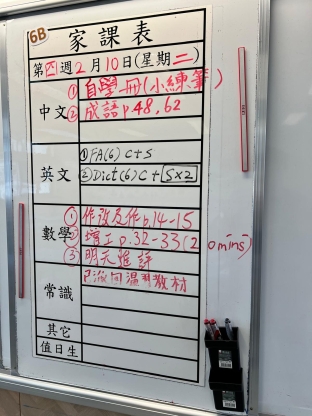 6B
家課表
第四週2月10日(星期二)
中文
①自學冊(小練筆)
②成語p.48,62
英文
①FA(6) C+S
②Dict(6) C+S×2
數學
①作改及作p.14-15
②增工p.32-33(20mins)
③明天進評
常識
溫習教材
其它
值日生